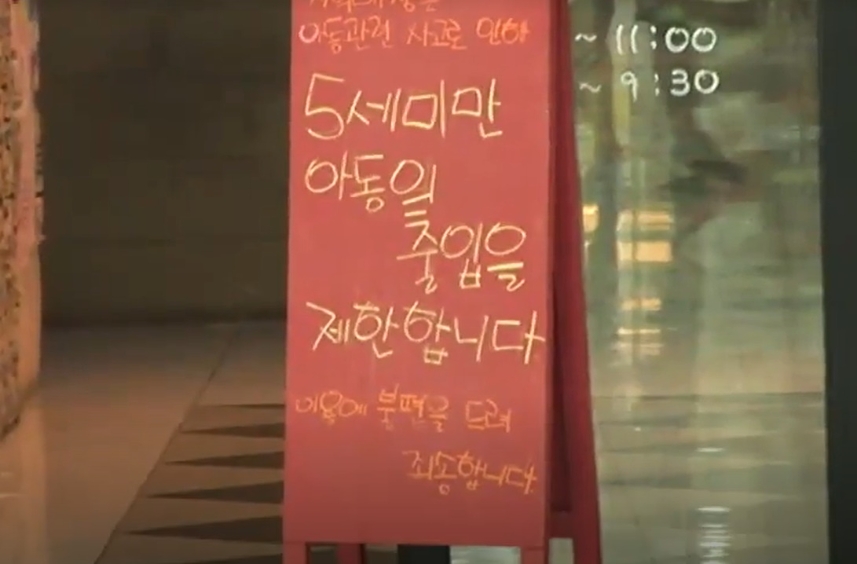 아동관련 사고로 인하
~ 11:00
~ 9:30
5세미만
아동의
출입을
제한합니다
이용에 불편을 드려
죄송합니다